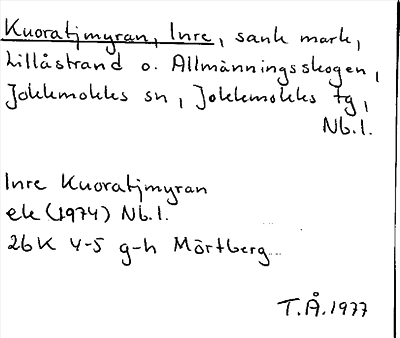 Kuoratjmyran, Inre, sank mark,
Lillåstrand o. Allmänningsskogen,
Jokkmokks sn, Jokkmokks tg,
Nb.l.
Inre Kuoratjmyran
ek (1974) Nb.l.
26K 4-5 g-h Mörtberg
T.Å.1977